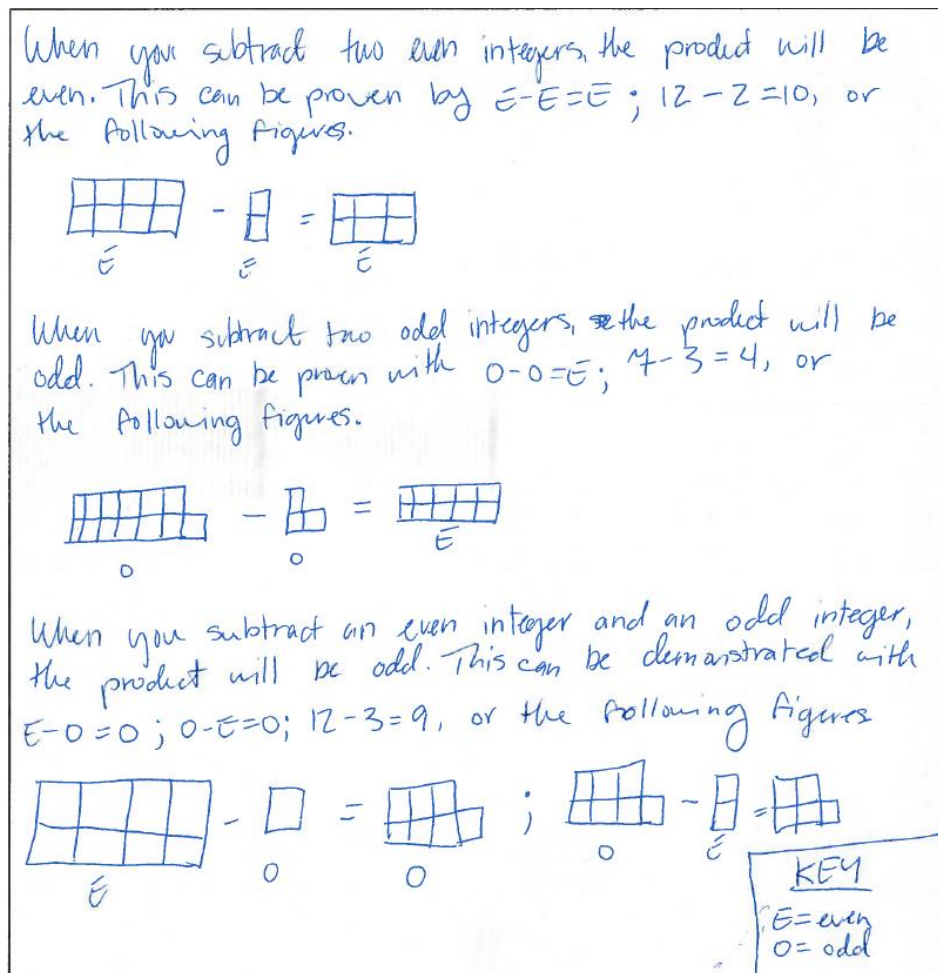 When you subtract two even integers, the product will be
even. This can be proven by E-E=E; 12-2=10, or
the following figures.
- =
E E E
When you subtract two odd integers, the product will be
odd. This can be proven with O-O=E; 7-3=4, or
the following figures.
- =
O O E
When you subtract an even integer and an odd integer,
the product will be odd. This can be demonstrated with
E-O=O; O-E=O; 12-3=9, or the following figures
- = ; - =
E O O O E
KEY
E=even
O=odd